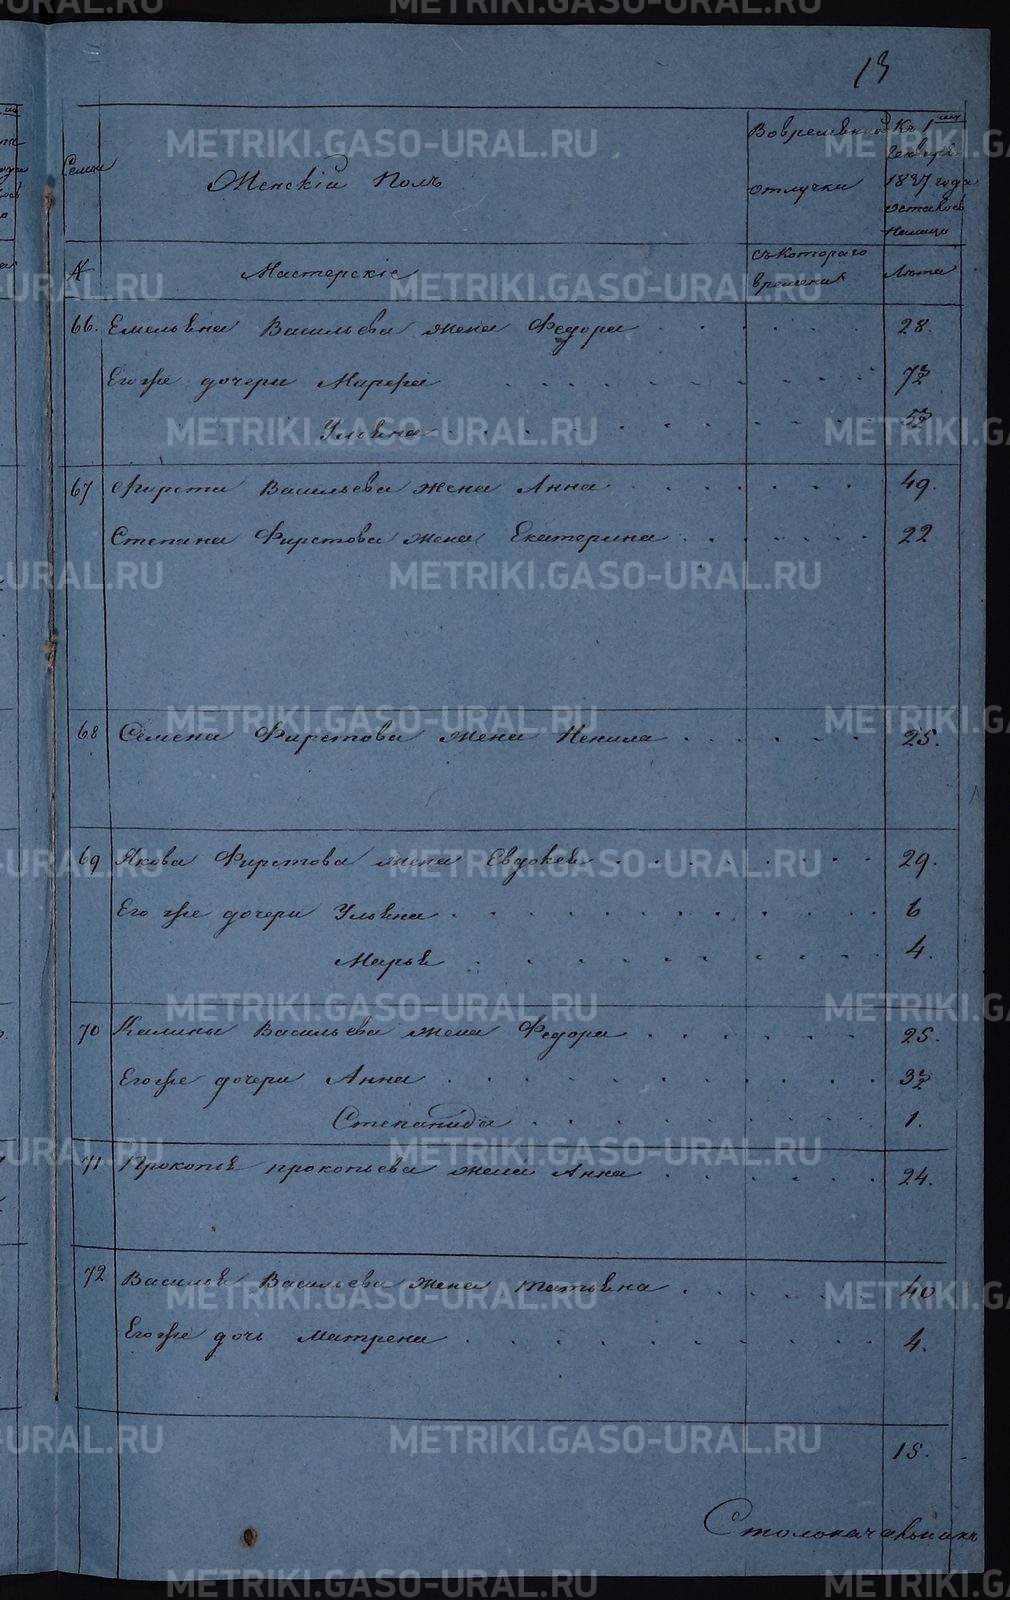 13
Семьи
Женскій Полъ
Вовременной отлучки
Къ 1му Генваря 1837 года осталось Налицо
№
Мастерскіе
съ котораго времени
Лета
66. Емельяна Васильева жена Федора 28.
Его же дочери Марфа 7 1/2
Ульяна 5 1/2
67 Фирста Васильева жена Анна 49.
Степана Фирстова жена Екатерина 22
68 Семена Фирстова жена Ненила 25.
69 Якова Фирстова жена Евдокея 29.
Его же дочери Ульяна 6
Марья 4.
70 Калины Васильева жена Федора 25.
Его же дочери Анна 3 1/2
Степанида 1.
71 Прокопья Прокопьева жена Анна 24.
72 Василья Васильева жена Татьяна 40
Его же дочь Матрена 4.
15.
Столоначальникъ
METRIKI.GASO-URAL.RU